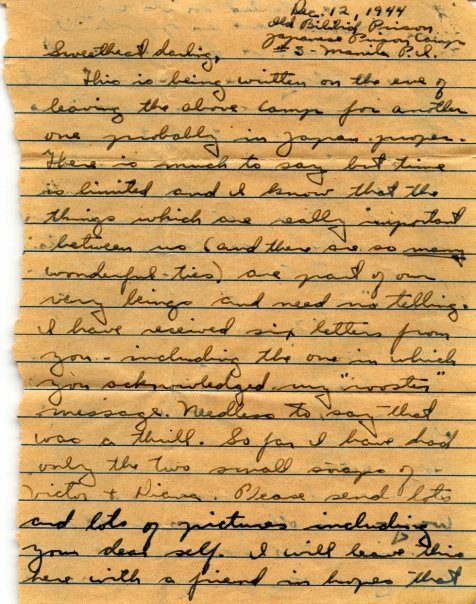 Dec. 12, 1944
Old Bilibid Prison
Japanese Prison Camp
# 3 - Manila P.I.
Sweetheart darling,
This is being written on the eve of
leaving the above camp for another
one probably in Japan proper.
There is much to say but time
is limited and I know that the
things which are really important
between us (and there are so many
wonderful ties) are part of our
very beings and need no telling.
I have received six letters from
you - including the one in which
you acknowledged my "rooster"
message. Needless to say that
was a thrill. So far I have had
only the two small snaps of
Victor + Diana. Please send lots
and lots of pictures including
your dear self. I will leave this
here with a friend in hopes that